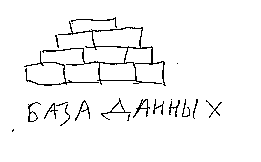 БАЗА ДАННЫХ